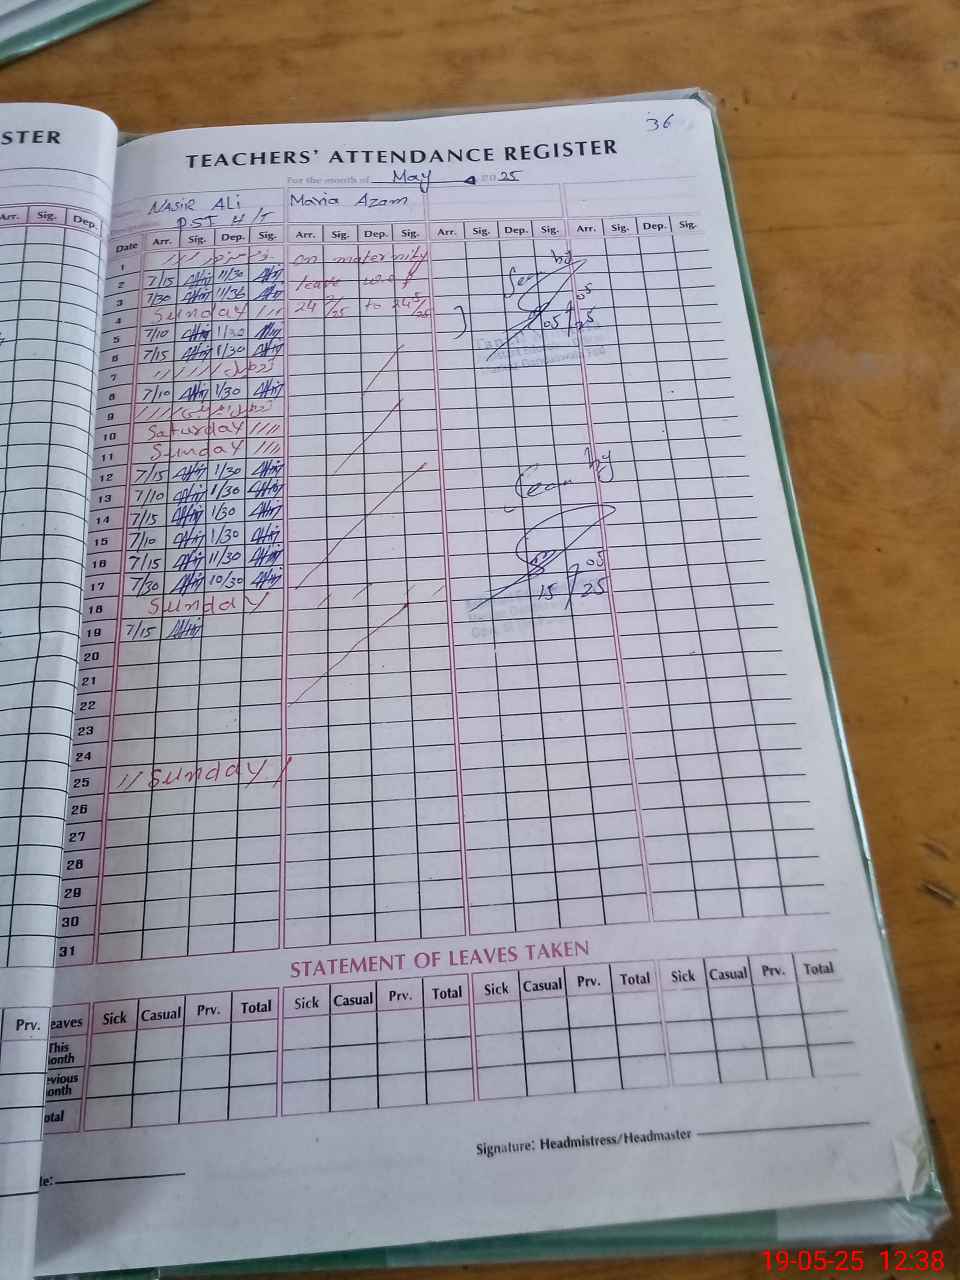 36
STER
TEACHERS' ATTENDANCE REGISTER
For the month of May 2025
NASIR ALi
P.S.T H/T
Maria Azam
Arr. Sig. Dep.
Date Arr. Sig. Dep. Sig. Arr. Sig. Dep. Sig. Arr. Sig. Dep. Sig. Arr. Sig. Dep. Sig.
1 on maternity
2 7/15 11/30 leave w.e.f
3 7/30 11/30 24 2/25 to 24 5/25
4 Sunday
5 7/10 1/30
6 7/15 1/30
7
8 7/10 1/30
9
10 Saturday
11 Sunday
12 7/15 1/30
13 7/10 1/30
14 7/15 1/30
15 7/10 1/30
16 7/15 11/30
17 7/30 10/30
18 Sunday
19 7/15
20
21
22
23
24
25 Sunday
26
27
28
29
30
31
Seen by
05/05/25
Seen by
15/05/25
STATEMENT OF LEAVES TAKEN
Prv. eaves Sick Casual Prv. Total Sick Casual Prv. Total Sick Casual Prv. Total Sick Casual Prv. Total
This
onth
evious
onth
otal
Signature: Headmistress/Headmaster
te:
19-05-25 12:38